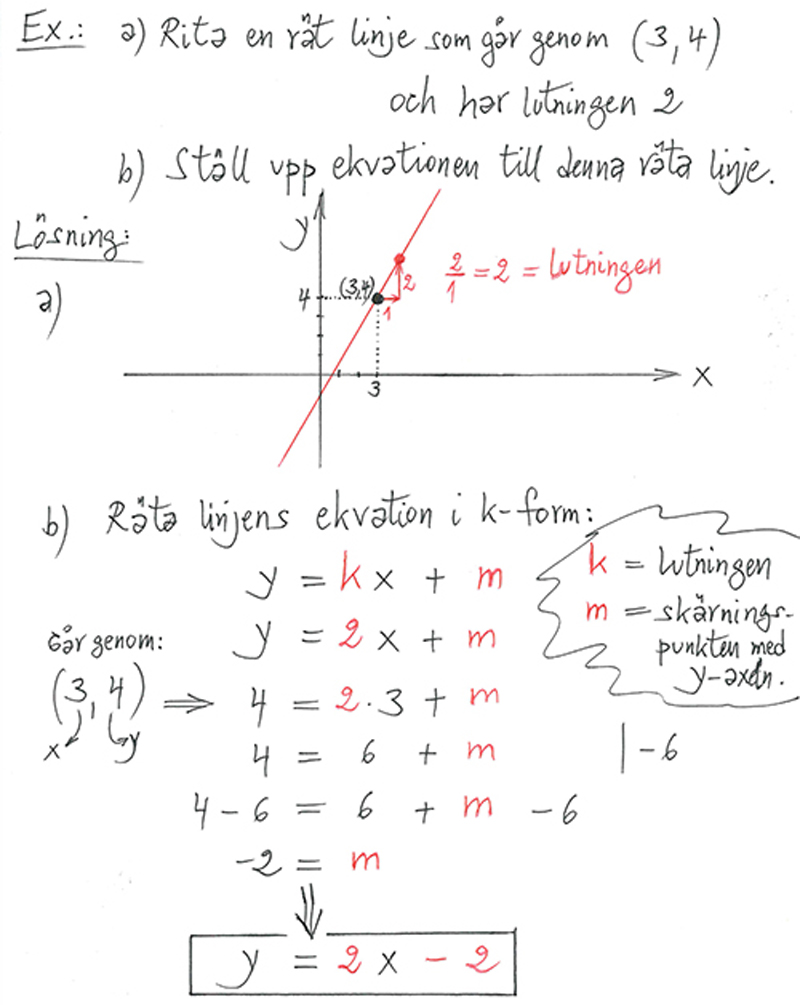 Ex.: a) Rita en rät linje som går genom (3,4)
och har lutningen 2
b) Ställ upp ekvationen till denna räta linje.
Lösning:
a)
y
(3,4)
4
2
1
2/1 = 2 = lutningen
3
x
b) Räta linjens ekvation i k-form:
y = kx + m
k = lutningen
m = skärnings-
punkten med
y-axeln.
y = 2x + m
Går genom:
(3,4) ⇒ 4 = 2·3 + m
x y
4 = 6 + m | -6
4 - 6 = 6 + m - 6
-2 = m
⇓
y = 2x - 2